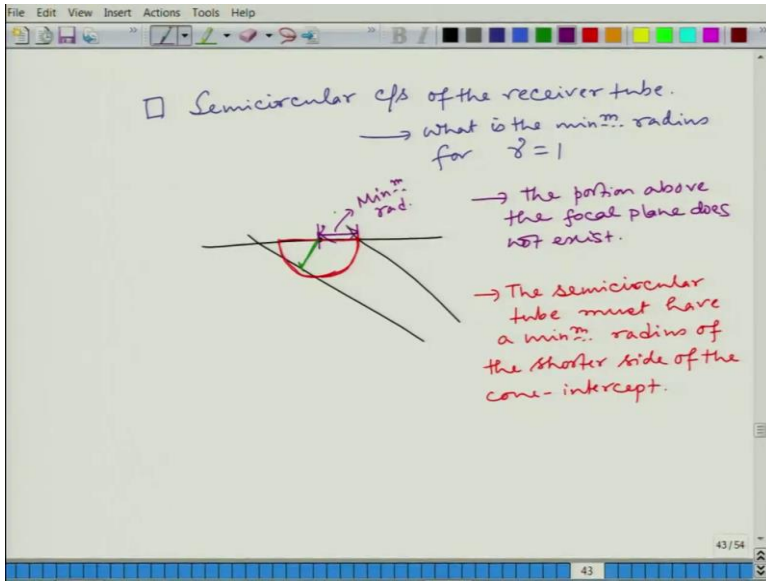 File Edit View Insert Actions Tools Help
B I
□ Semicircular c/s of the receiver tube.
→ what is the minm. radius
for γ = 1
Minm
rad.
→ the portion above
the focal plane does
not exist.
→ The semicircular
tube must have
a minm. radius of
the shorter side of the
cone-intercept.
43/54
43